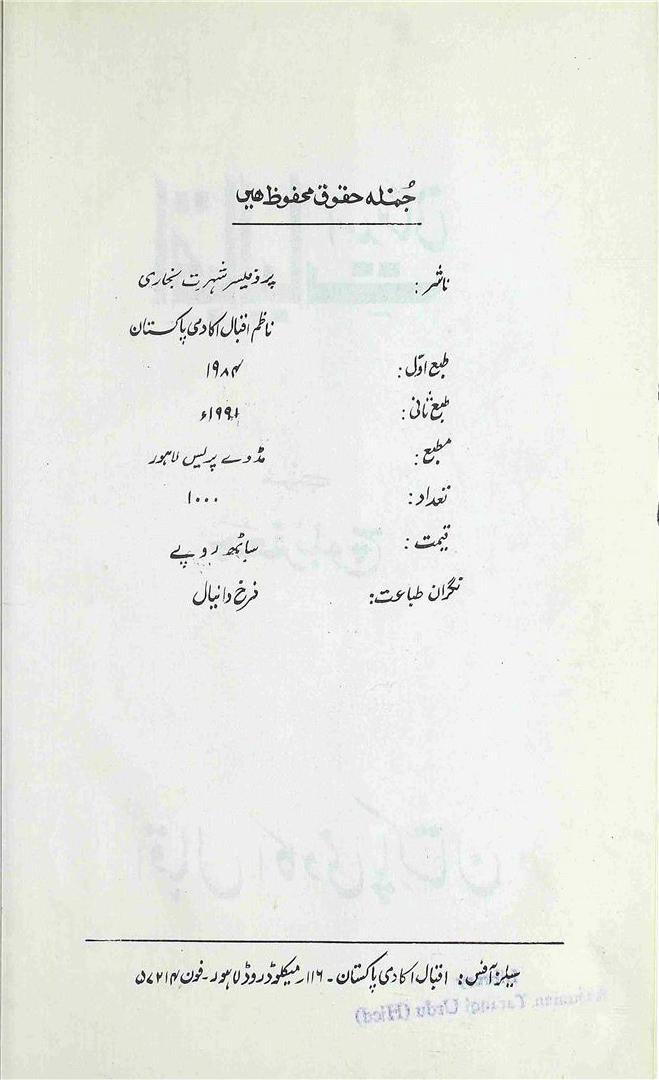 جُملہ حقوق محفوظ ھیں
ناشر: پروفیسر شہرت بخاری
ناظم اقبال اکادمی پاکستان
طبع اوّل: ۱۹۸۴
طبع ثانی: ۱۹۹۱ء
مطبع: مڈوے پریس لاہور
تعداد: ۱۰۰۰
قیمت: ساٹھ روپے
نگران طباعت: فرخ دانیال
سیلز آفس: اقبال اکادمی پاکستان ۔ ۱۱۶ ۔ میکلوڈ روڈ لاہور ۔ فون ۵۷۲۱۴